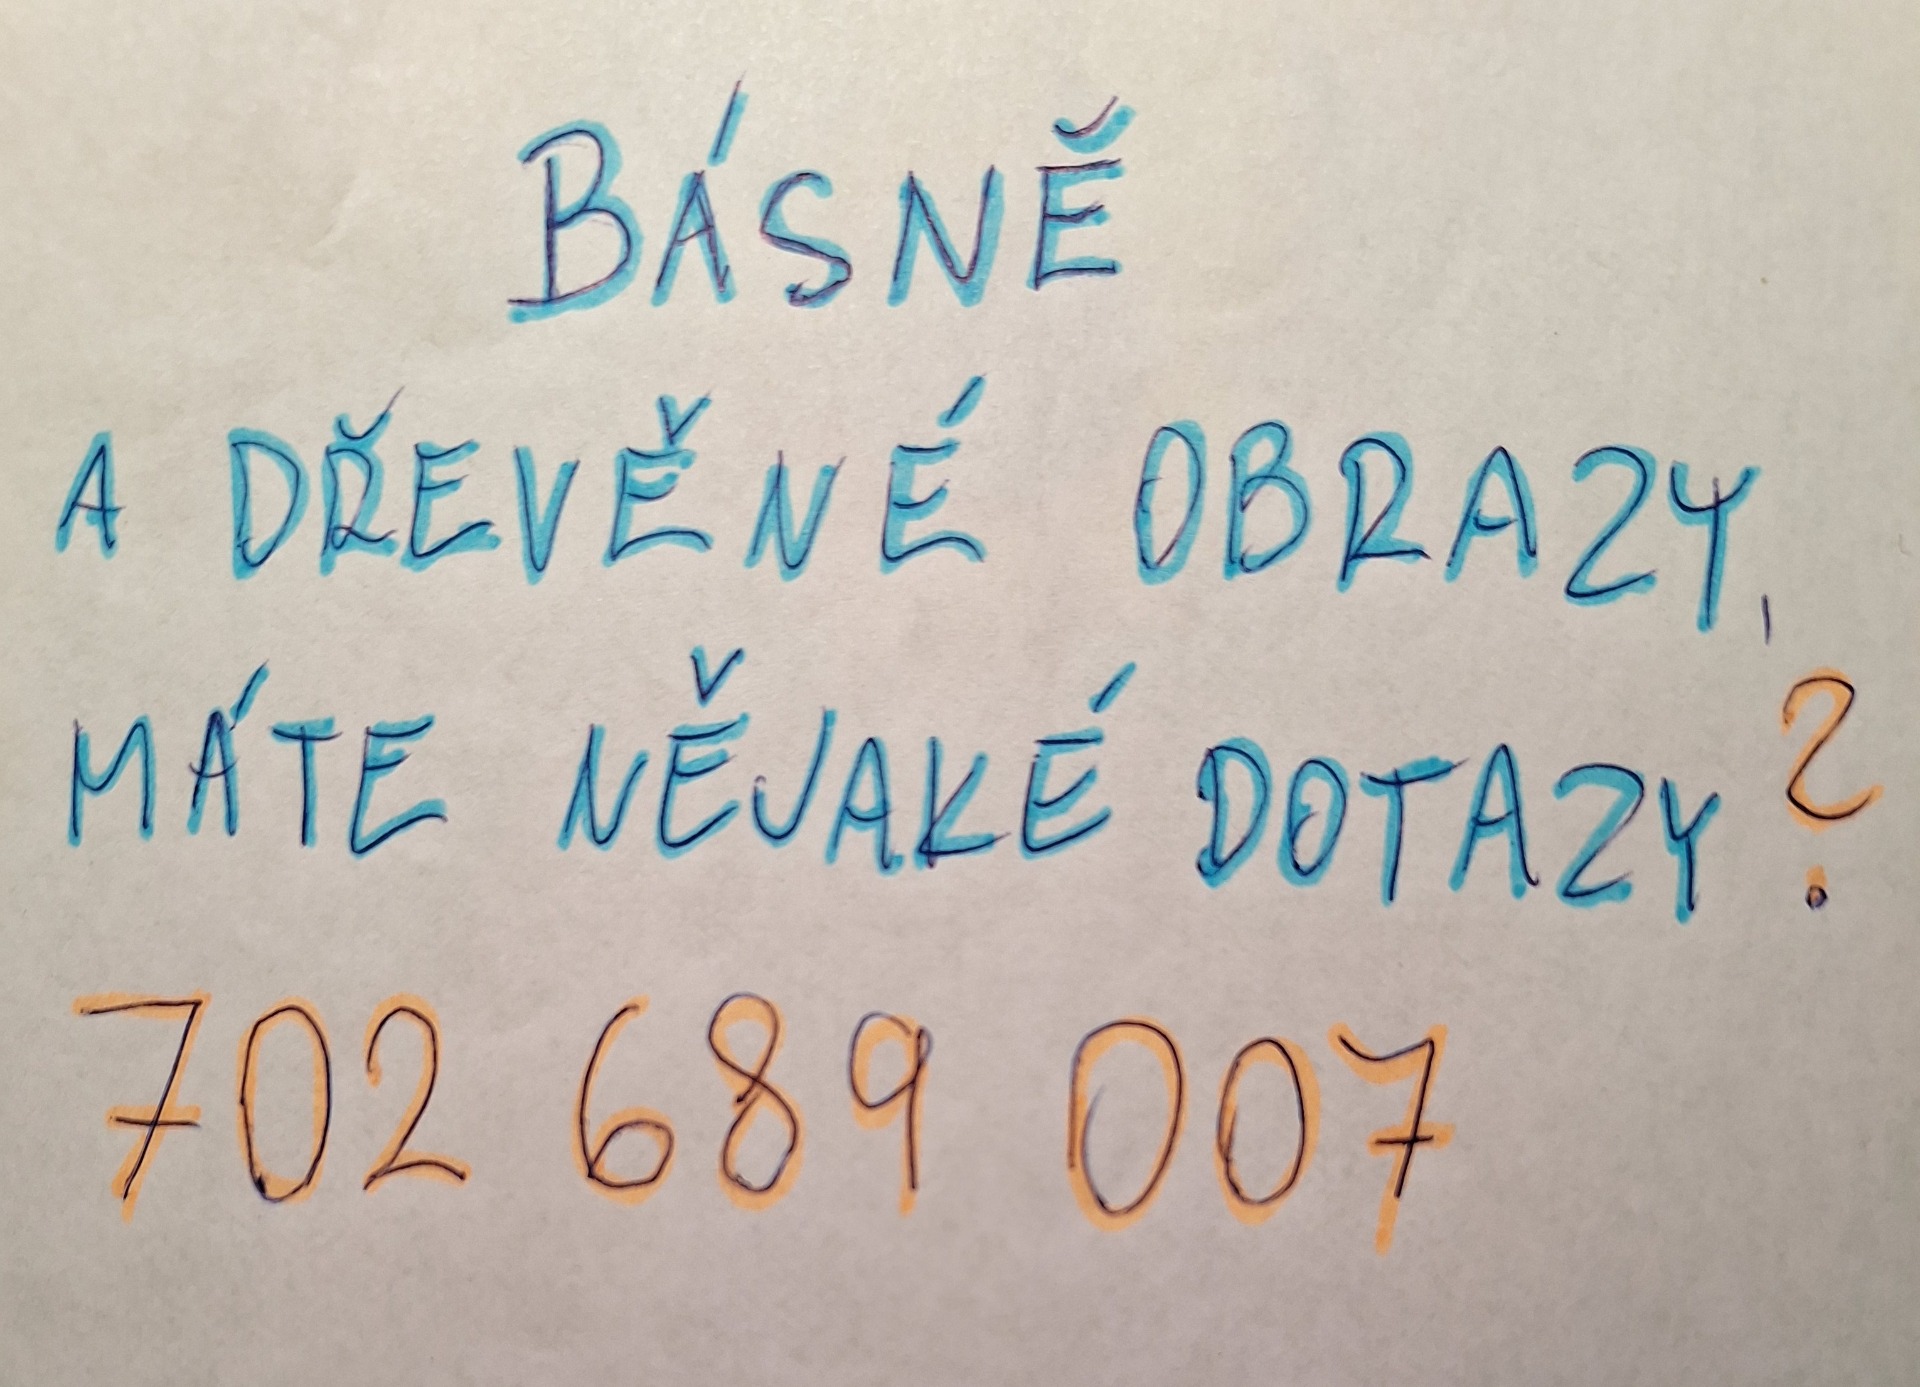 BÁSNĚ
A DŘEVĚNÉ OBRAZY,
MÁTE NĚJAKÉ DOTAZY?
702 689 007